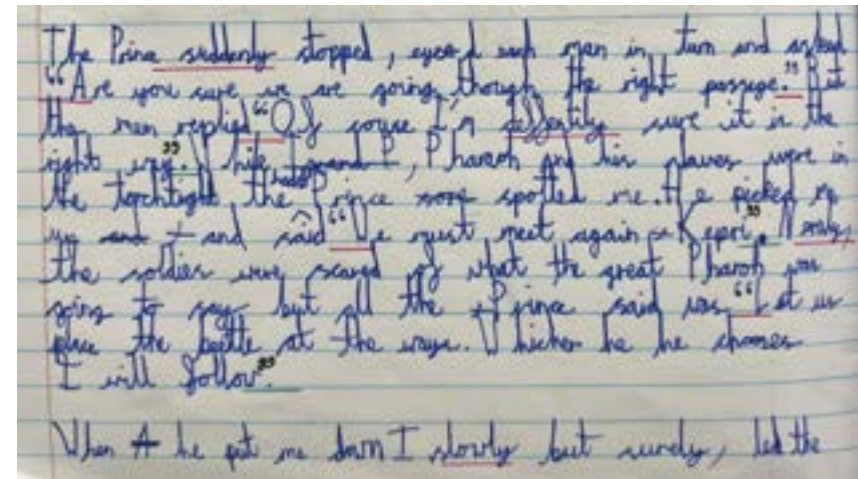 The Prince suddenly stopped, eyed each man in turn and asked
"Are you sure we are going though the right passage." But
the men replied "Of couse I'm deffentily sure it is the
right way." While P, Pharaoh and his slaves were in
the torchtight, the Prince spotted me. He picked
up and and said "We must meet again Kepri."
the soldiers were scared of what the great Pharoh was
going to say but all the Prince said was "Let us
place the beetle at the ways. Whicher he he chooses
I will follow."
When he put me down I slowly but surely, led the